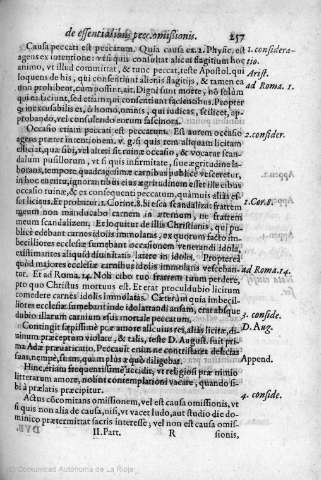 de essentialibus pec. omissionis. 257
Causa peccati est peccatum. Quia causa ex 2. Physic. est
agens ex intentione: vt si quis consultat alicui flagitium hoc
animo, vt illud committat, & tunc peccat, teste Apostol. qui
loquens de his, qui consentiunt alienis flagitijs, & tamen ea
non prohibent, cùm possint, ait. Digni sunt morte, nō solùm
qui ea faciunt, sed etiam qui consentiunt facientibus. Propter
quod inexcusabilis es, ô homo, omnis, qui iudicas, scilicet, ap-
probando, vel consulendo eorum fascinora.
Occasio etiam peccati est peccatum. Est autem occasio
agens præter intentionem. v. g. si quis rem aliquam licitam
efficiat, quæ sibi, vel alteri sit ruinæ occasio, & vocatur scan-
dalum pusillorum, vt si quis infirmitate, siue ægritudine la-
borans, tempore quadragesimæ carnibus publicè vesceretur,
in hoc euentu, ignorantibus eius ægritudinem esset ille cibus
occasio ruinæ, & ex consequenti peccatum, quamuis aliàs es-
set licitus, Et probatur. 1. Corint. 8. Si esca scandalizat fratrem
meum non manducabo carnem in æternum, ne fratrem
meum scandalizem, Et loquitur de illis Christianis, qui pu-
blicè edebant carnes idolis immolatas, ex quorum facto im-
becilliores ecclesiæ sumebant occasionem venerandi idola,
existimantes aliquid diuinitatis latere in idolis. Propterea
quòd maiores ecclesiæ carnibus idolis immolatis vesceban-
tur. Et ad Roma. 14. Noli cibo tuo fratrem tuum perdere,
pro quo Christus mortuus est. Et erat proculdubio licitum
comedere carnes idolis immolatas. Cæterùm quia imbecil-
liores ecclesiæ sumebant inde idolatrandi ansam, erat absque
dubio illarum carnium esus mortale peccatum.
Contingit sæpissimè præ amore alicuius rei, aliàs licitæ, di-
uinum præceptum violare, & talis, teste D. August. fuit pri-
ma Adæ præuaricatio. Peccauit enim ne contristaret delicias
suas, nempè, suam, quam plus æquo diligebat.
Hinc, etiam frequentissimè accidit, vt religiosi præ nimio
litterarum amore, nolint contemplationi vacare, quando si-
bi à prælatis præcipitur.
Actus cōcomitans omissionem, vel est causa omissionis, vt
si quis non alia de causa, nisi, vt vacet ludo, aut studio die do-
minico prætermittat sacris interesse; vel non est causa omis-
II. Part. R sionis,
1. considera-
tio.
Arist.
ad Roma. 1.
2. consider.
1. Cor. 8.
ad Roma. 14.
3. conside.
D. Aug.
Append.
4. conside.
Comunidad Autónoma de La Rioja